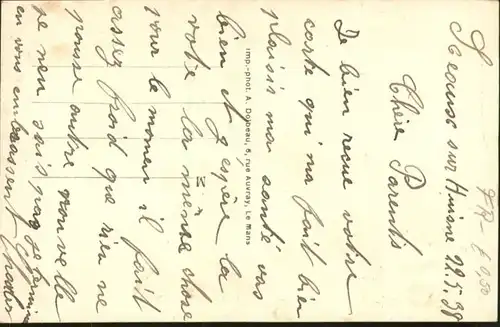 Sceaux sur Huisne 22.5.38
Chère Parents
J'ai bien recue votre
carte qui ma fait bien
plaisir mon santé vas
bien et J espère la
votre la mense chose
pour le momen il fait
assez froid que rien ne
pousse autre nouvelle
Je nen sais pas Je termine
en vous embrassent
Imp.-phot. A. Dolbeau, 5, rue Auvray, Le Mans
7R- € 0,50